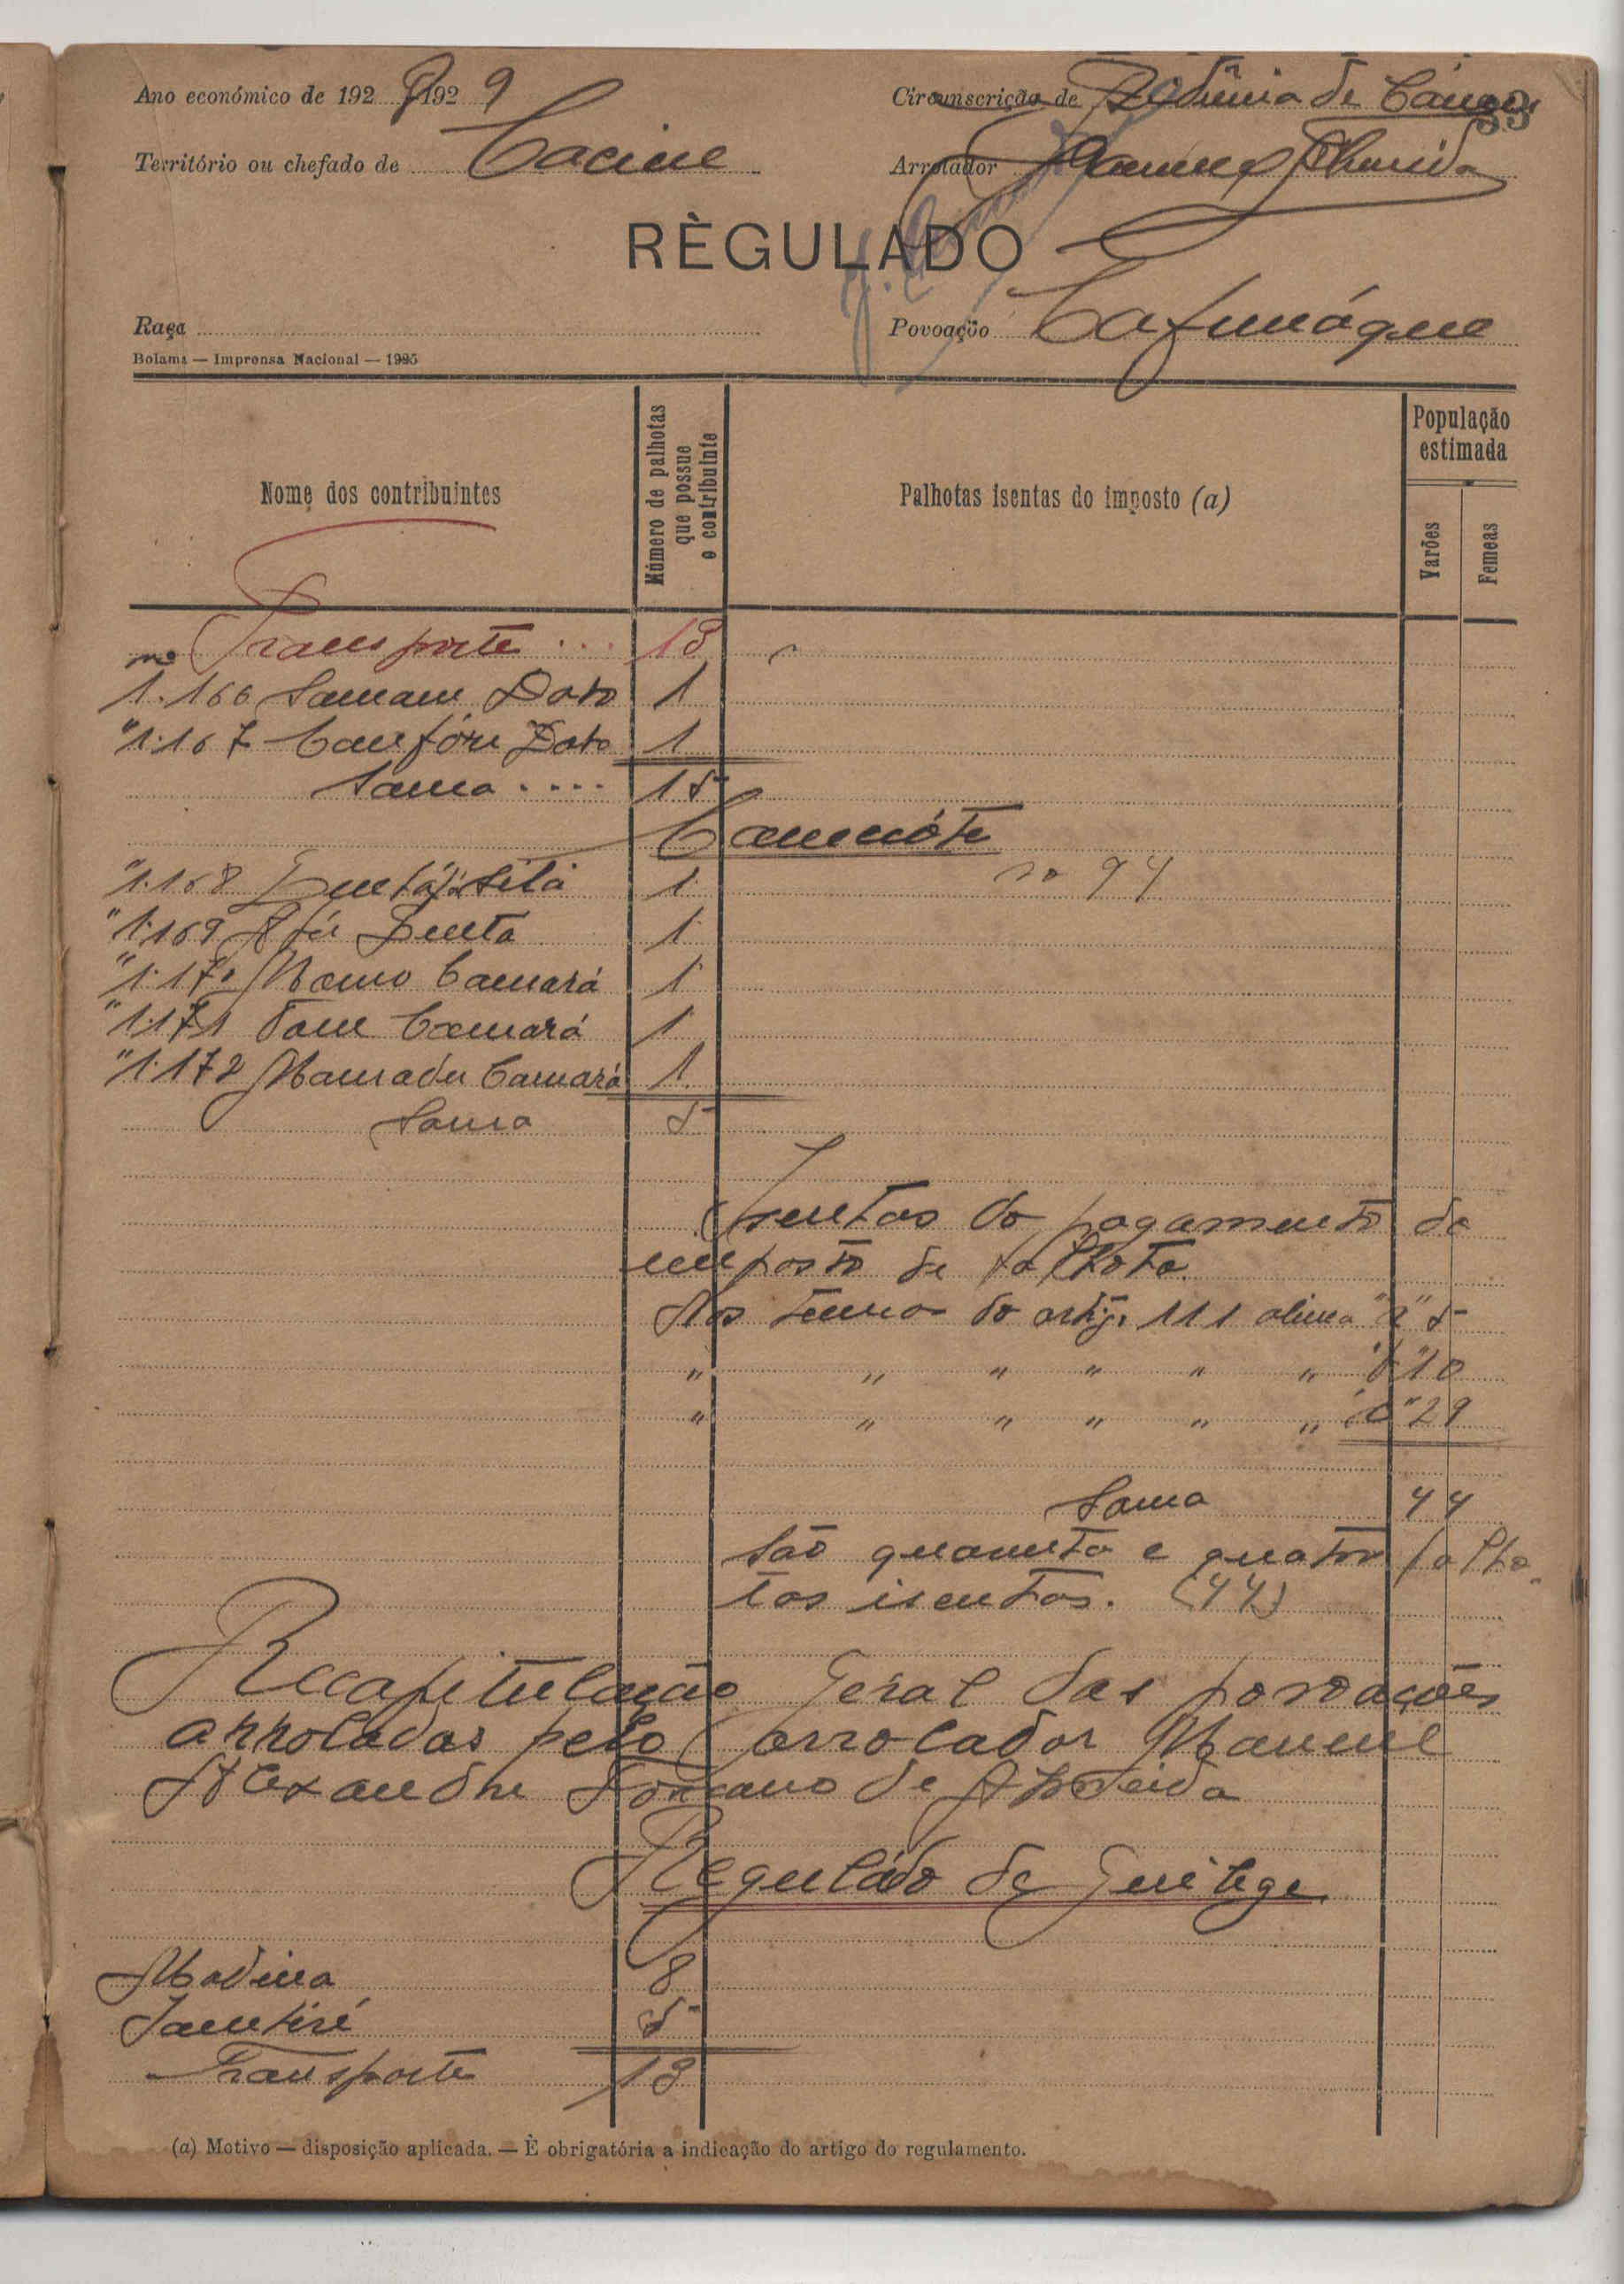 Ano económico de 192 8 192 9
Circunscrição de Rèdência de Cacine
33
Território ou chefado de Cacine
Arrolador Manuel Almeida
RÈGULADO
Raça
Povoação Cafunáque
Bolama — Imprensa Nacional — 1925
Nome dos contribuintes
Número de palhotas que possue o contribuinte
Palhotas isentas do imposto (a)
População estimada
Varões
Femeas
no Transporte . . . 13
1.166 Dato 1
" 1.167 Dato 1
Soma . . . . 15
Camcóte
" 1.168 1 no 94
" 1.169 1
" 1.170 Camará 1
" 1.171 Camará 1
" 1.172 Mamadu Camará 1
Soma 5
Isentas do pagamento do
imposto de palhota.
Nos termos do artigo 111 alinea "a" 5
" " " " " " "b" 10
" " " " " " "c" 29
Soma 44
São quarenta e quatro palho-
tas isentas. (44)
Recapitulação Geral das povoações
arroladas pelo arrolador Manuel
Alexandre de Almeida
Reguládo de Guilege
Madina 8
Jamtiré 5
Transporte 13
(a) Motivo — disposição aplicada. — È obrigatória a indicação do artigo do regulamento.